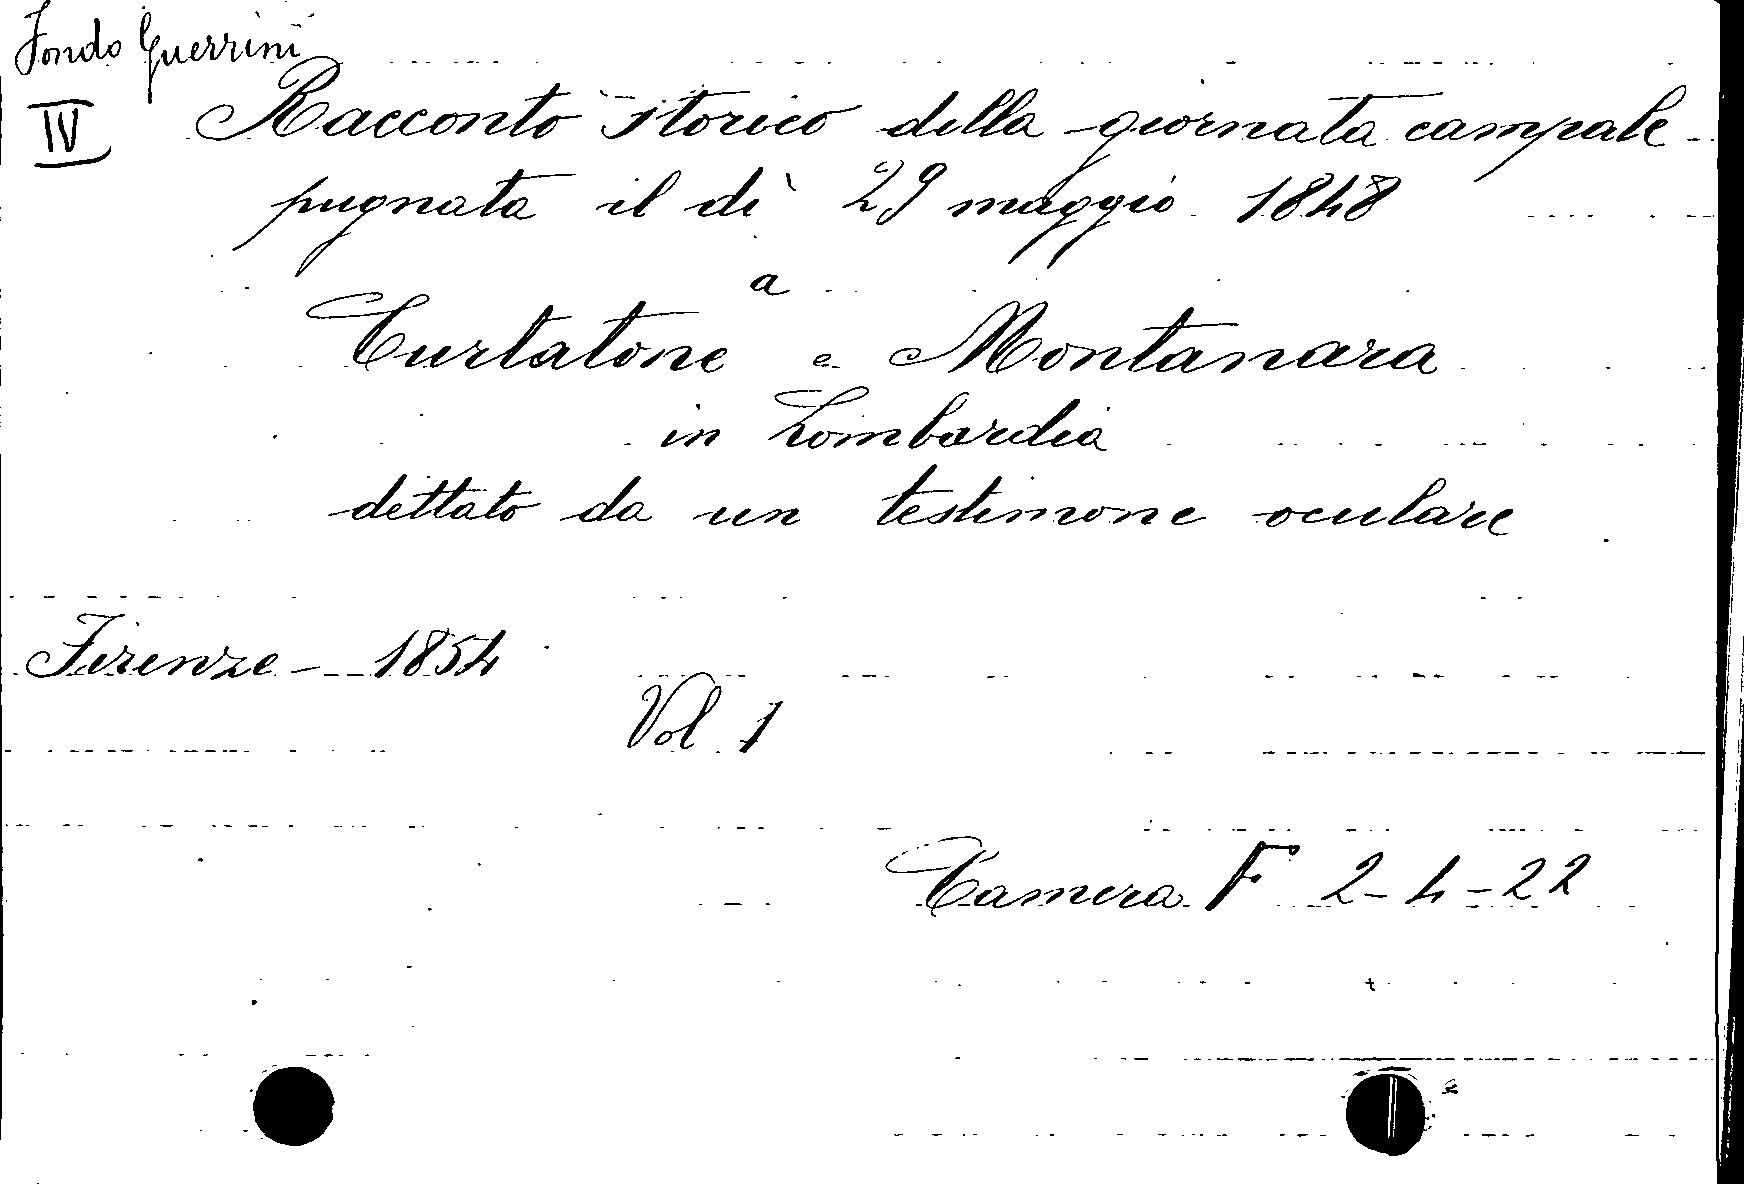 Fondo Guerrini
IV
Racconto storico della giornata campale
pugnata il dì 29 maggio 1848
a
Curtatone e Montanara
in Lombardia
dettato da un testimone oculare
Firenze - 1854
Vol. 1
Camera F 2-4-22